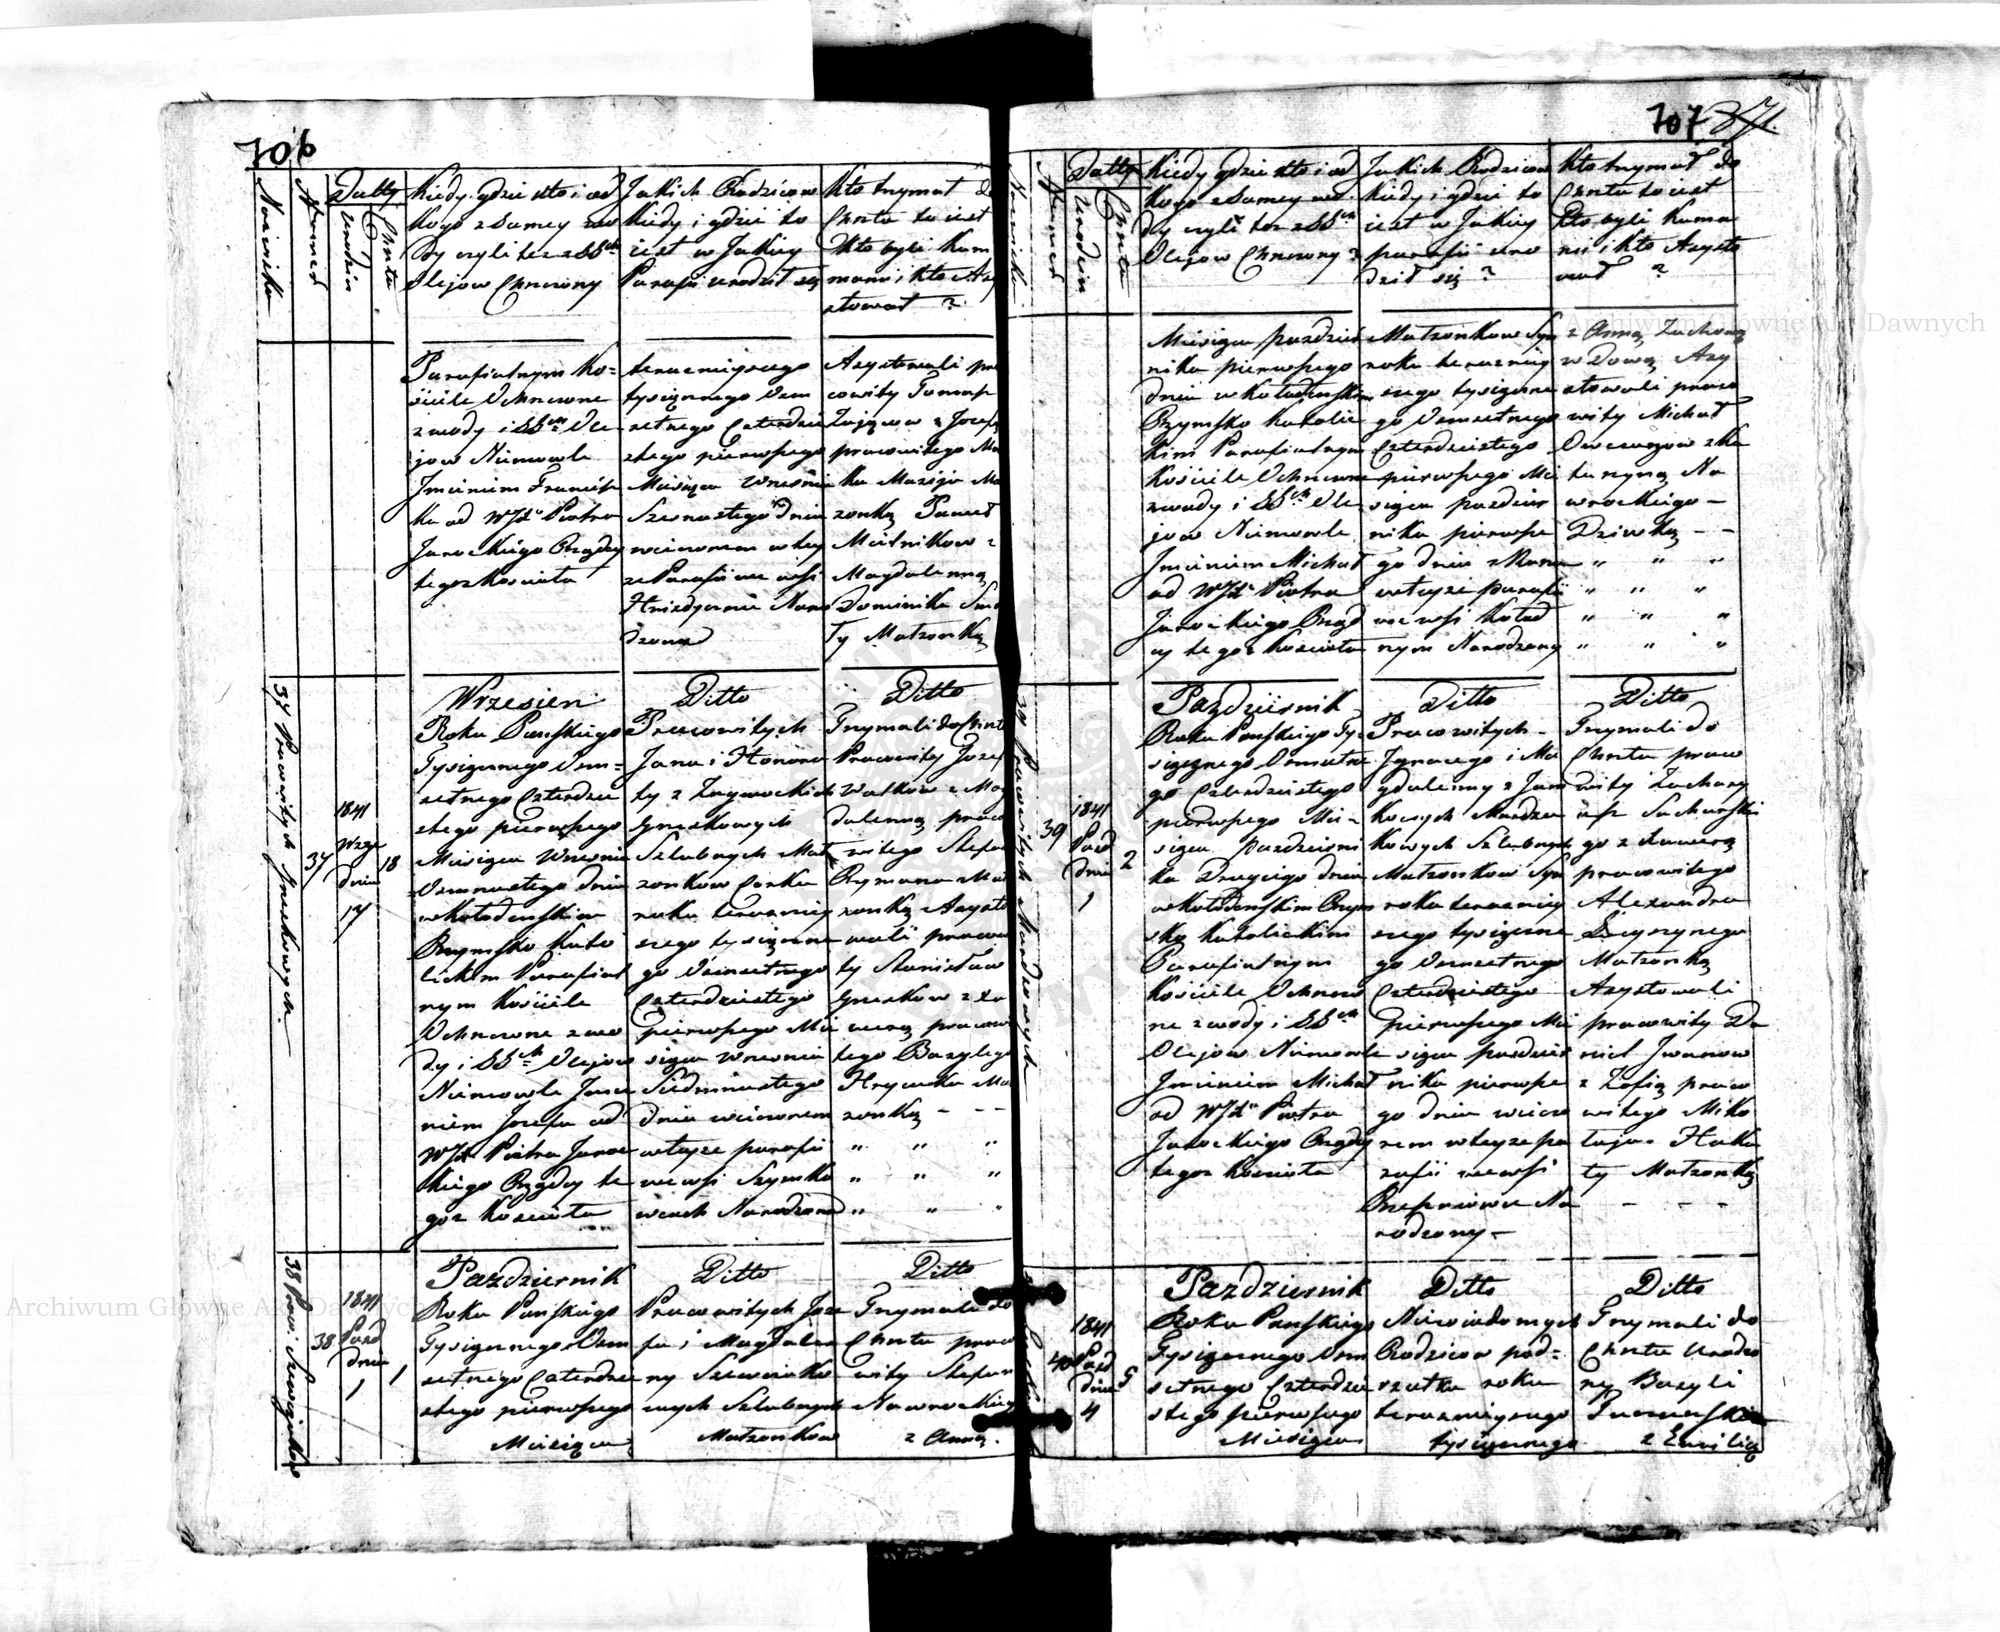 706
Datty
Kiedy gdzie kto i od
kogo z Samey wo
dy czyli też z SSch
Olejow Chrzczony
Jakich Rodzicow
kiedy i gdzie to
iest w Jakiey
Parafii urodził się
Kto trzymał do
Chrztu to iest
Kto byli Kum
mami i kto Asy
stował ?
Parafialnym Ko=
ściele Ochrzczone
z wody i SSch Ole
jow Niemowle
Jmieniem Francisz
ka od WJX Piotra
Jarockiego Rządcy
tegoż Kościoła
teraznieyszego
tysiącznego Osm
setnego Czterdzie
stego pierwszego
Miesiąca Wrześnie
Szesnastego dnia
wieczorem w tey
że Parafii we wsi
Hniezdycznie Naro
dzona
Asystowali pra
cowity Tomasz
Zająców z Jozefą
pracowitego Ma
Małżonką Paweł
Mielnikow z
Magdaleną
Dominika
ty Małżonką
37 Pracowitych Gruszkowych
37
1841
Wrze
dnia
17
18
Wrzesień
Roku Pańskiego
Tysiącznego Osm=
setnego Czterdzie
stego pierwszego
Miesiąca Wrześnie
Osmnastego dnia
w Kołodeńskim
Rzymsko Kato
lickim Parafial
nym Kościele
Ochrzczone z wo
dy i SSch Olejow
Niemowle Jmie
niem Jozefa od
WJX Piotra Jaroc
kiego Rządcy te
goż Kościoła
Ditto
Pracowitych
Jana i Honora
ty z Zagurockich
Gruszkowych
Szlubnych Mał
żonkow Corka
roku terazniey
szego tysiączne
go Osmsetnego
Czterdziestego
pierwszego Mie
siąca Wrześnie
Siedmnastego
dnia wieczorem
w teyże parafii
we wsi Szymko
wcach Narodzona
Ditto
Trzymali do Chrztu
Pracowity Jozef
Wałkow z Mag
daleną praco
witego Stefana
Rymara Mał
żonką Asysto
wali pracowi
ty Stanisław
Gruszkow z Xa
werą pracowi
tego Bazylego
Hrycuka Mał
żonką - - -
" " "
" " "
" " "
38
1841
Pazd
dnia
1
1
Pazdziernik
Roku Pańskiego
Tysiącznego Osm
setnego Czterdzie
stego pierwszego
Miesiąca
Ditto
Pracowitych Joze
fa i Magdale
ny
wych Szlubnych
Małżonkow
Ditto
Trzymali do
Chrztu praco
wity Stefan
Nawrockiego
z Anną.
707
Datty
Kiedy gdzie kto i od
kogo z Samey wo
dy czyli też z SSch
Olejow Chrzczony ?
Jakich Rodzicow
kiedy i gdzie to
iest w Jakiey
parafii uro
dził się ?
Kto trzymał do
Chrztu to iest
kto byli Kuma
mi i kto Asysto
wał ?
Miesiąca pazdzier
nika pierwszego
dnia w Kołodeńskim
Rzymsko Katolic
kim Parafialnym
Kościele Ochrzczone
z wody i SSch Ole
jow Niemowle
Jmieniem Michał
od WJX Piotra
Jarockiego Rząd
cy tegoż Kościoła
Małżonkow Syn
roku terazniey
szego tysiączne
go Osmsetnego
Czterdziestego
pierwszego Mie
siąca pazdzier
nika pierwsze
go dnia z Rana
w teyże parafii
we wsi Kołod
nym Narodzony
z Anną
wdową Asy
stowali praco
wity Michał
z Ka
tarzyną Na
wrockiego -
Dziewką - -
" " "
" " "
" " "
" " "
39
1841
Pazd
dnia
1
2
Pazdziernik
Roku Pańskiego Ty
siącznego Osmsetne
go Czterdziestego
pierwszego Mie-
siąca pazdzierni
ka Drugiego dnia
w Kołodeńskim Rzym
sko Katolickim
Parafialnym
Kościele Ochrzczo
ne z wody i SSch
Olejow Niemowle
Jmieniem Michał
od WJX Piotra
Jarockiego Rządcy
tegoż Kościoła
Ditto
Pracowitych -
Jgnacego i Ma
gdaleny z Jan
kowych Mardzew
kowych Szlubnych
Małżonkow Syn
roku terazniey
szego tysiączne
go Osmsetnego
Czterdziestego
pierwszego Mie
siąca pazdzier
nika pierwsze
go dnia wieczo
rem w teyże pa
rafii we wsi
Na
rodzony -
Ditto
Trzymali do
Chrztu praco
wity Zachary
asz Sucharski
go z Xawerą
pracowitego
Alexandra
Małżonką
Asystowali
pracowity Da
niel Jwanow
z Zofią praco
witego Miko
łaja Haka
ty Małżonką
- - -
40
1841
Pazd
dnia
4
5
Pazdziernik
Roku Pańskiego
Tysiącznego Osm
setnego Czterdzie
stego pierwszego
Miesiąca
Ditto
Niewiadomych
Rodzicow pod=
rzutka roku
teraznieyszego
tysiącznego
Ditto
Trzymali do
Chrztu Urodzo
ny Bazyli
z Emilią
Archiwum Główne Akt Dawnych
Archiwum Główne Akt Dawnych